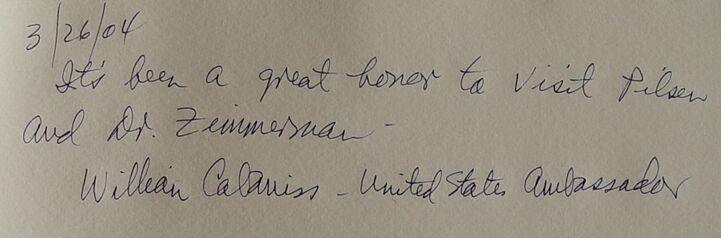 3/26/04
It's been a great honor to visit Pilsen
and Dr. Zimmerman -
William Cabaniss - United States Ambassador